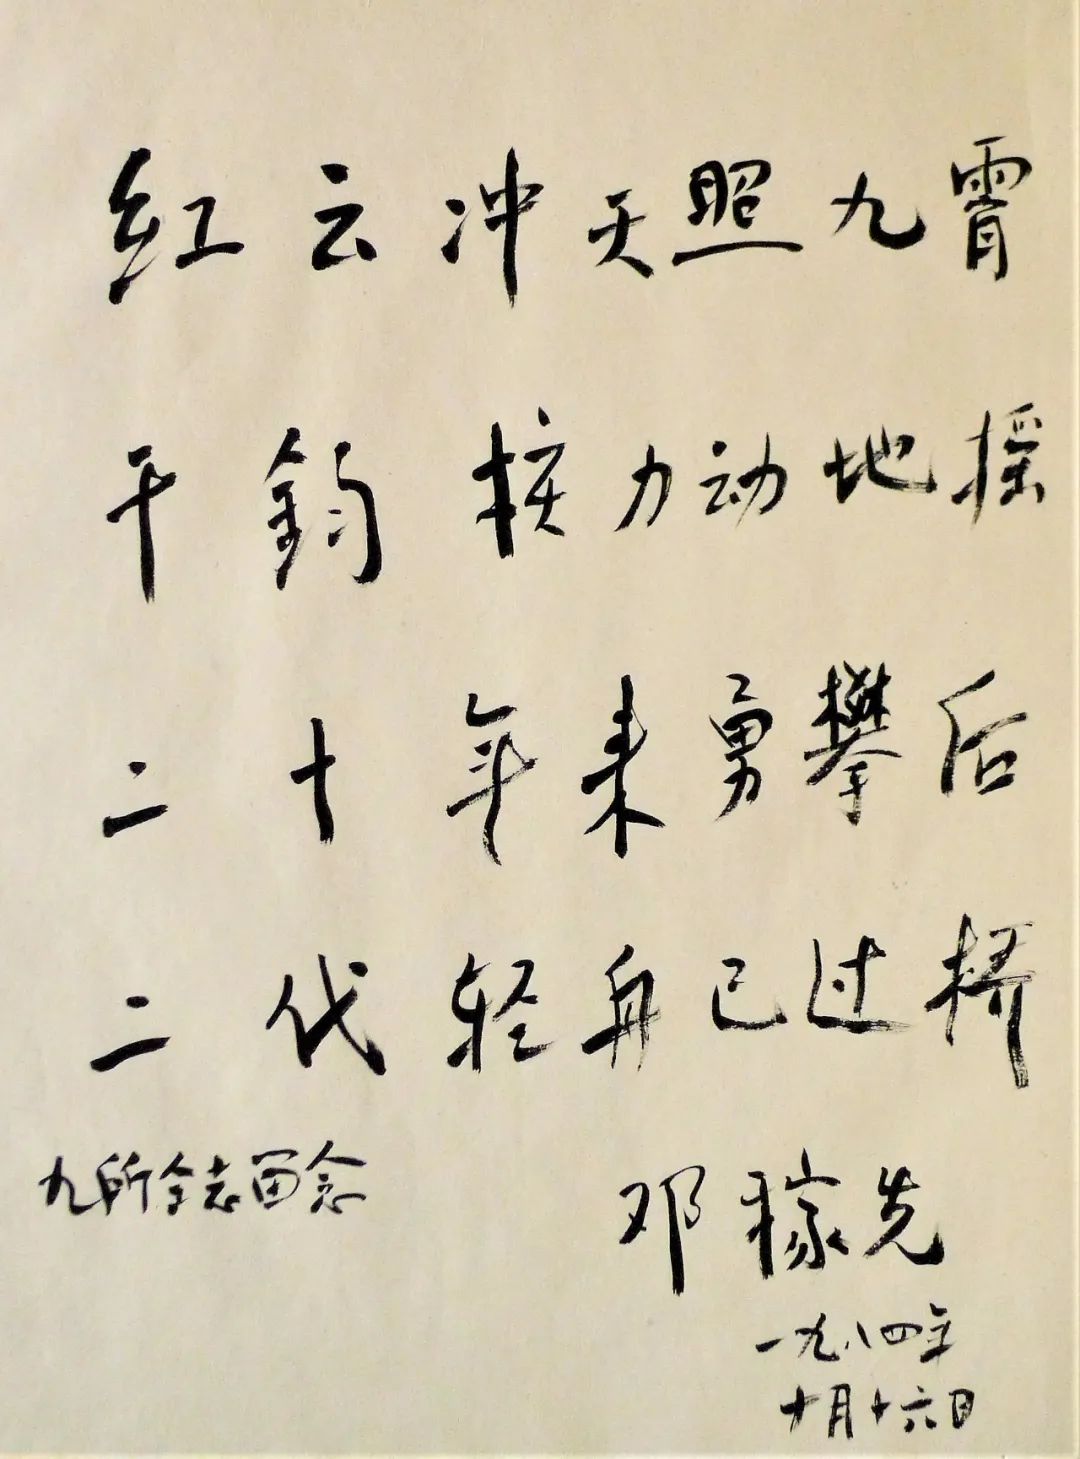 红云冲天照九霄
千鈞核力动地摇
二十年来勇攀后
二代轻舟已过桥
九所仝志留念
邓稼先
一九八四年
十月十六日